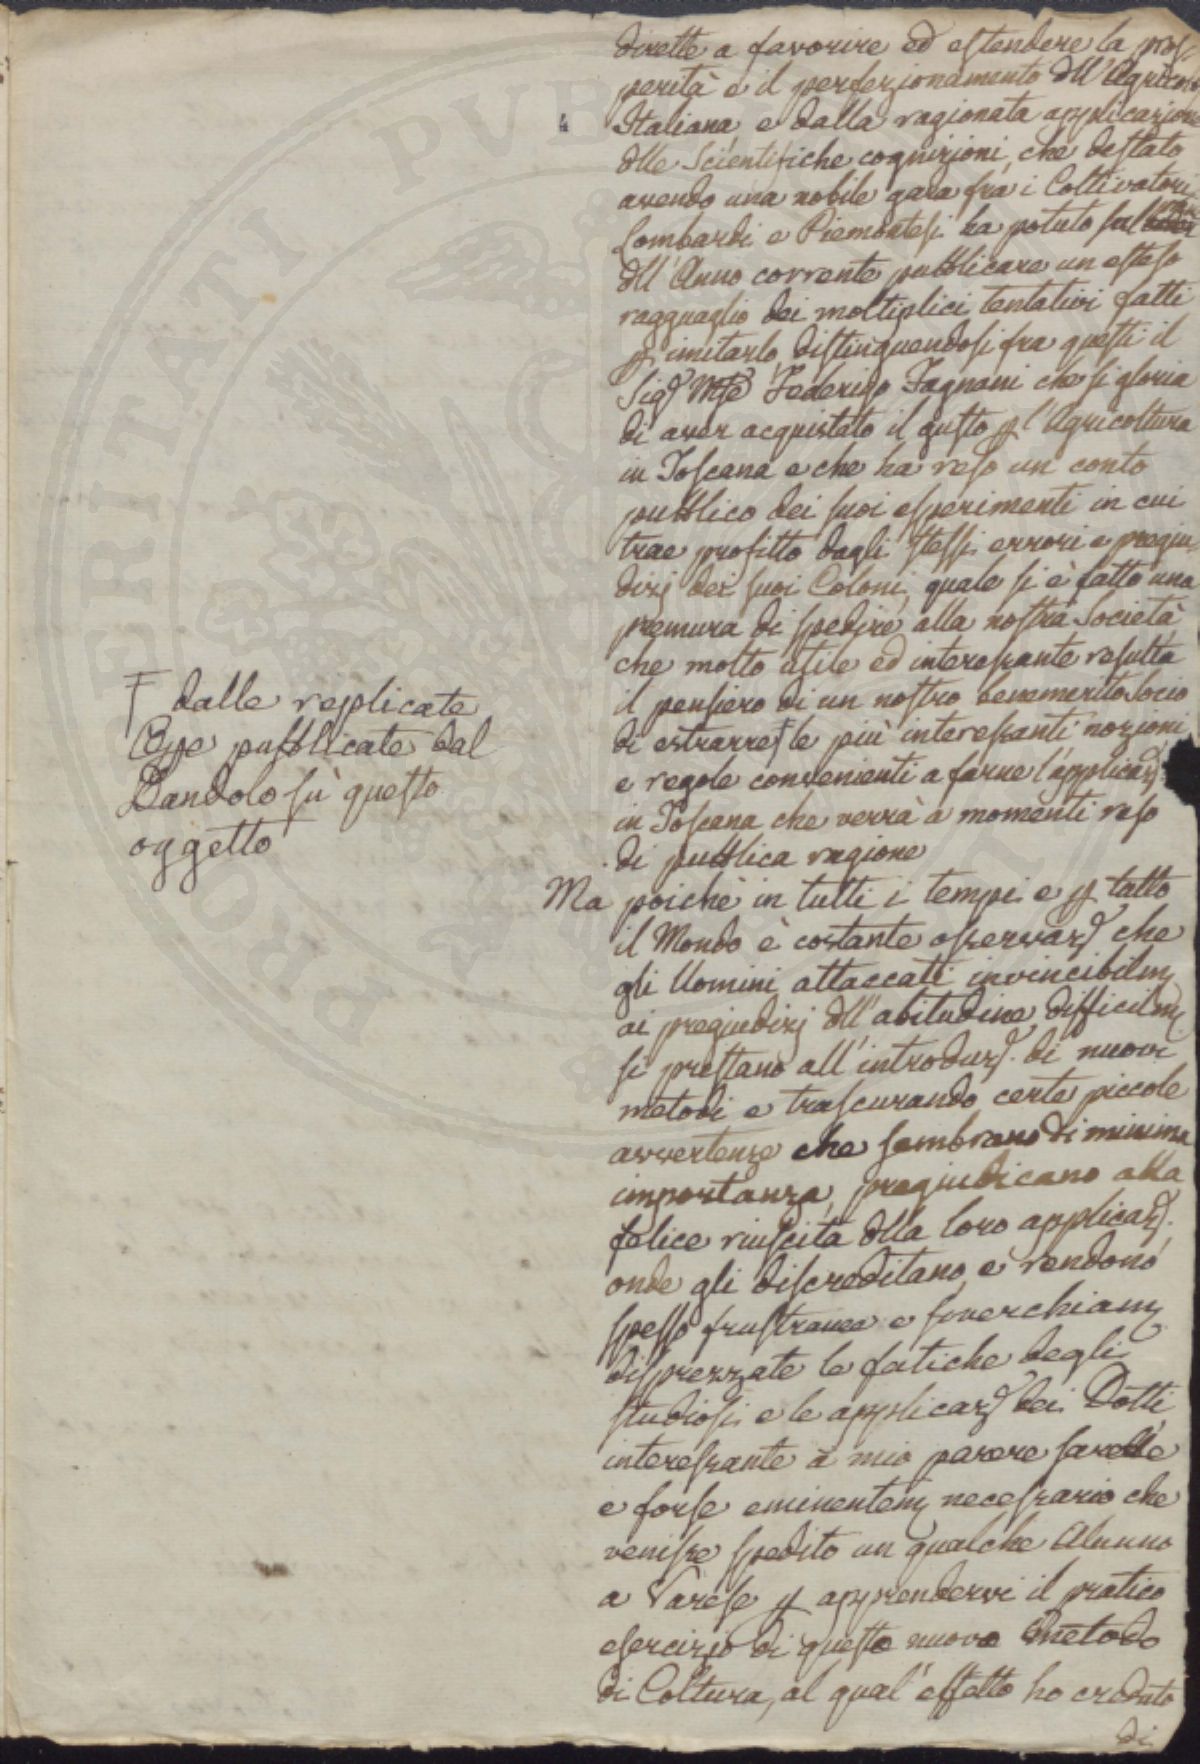 4
dirette a favorire ed estendere la pros-
perità e il perfezionamento dll'Agricol
Italiana, e dalla ragionata applicazione
dlle Scientifiche cognizioni, che destato
avendo una nobile gara frà i Coltivatori
Lombardi e Piemontesi ha potuto sul
dll'Anno corrente pubblicare un esteso
ragguaglio dei moltiplici tentativi fatti
p imitarlo, distinguendosi fra questi il
Sigr. Mse Federigo Fagnani che si gloria
di aver acquistato il gusto p l'Agricoltura
in Toscana e che ha reso un conto
pubblico dei suoi esperimenti in cui
trae profitto dagli stessi errori e pregiu
dizj dei suoi Coloni, quale si è fatto una
premura di spedire alla nostra Società
che molto utile ed interessante resulta
il pensiero di un nostro benemerito Socio
di estrarre Ƒ le più interessanti nozioni
e regole convenienti a farne l'applicaz.
in Toscana che verrà a momenti reso
di pubblica ragione
Ƒ dalle replicate
Ope pubblicate dal
Dandolo sù questo
oggetto
Ma poichè in tutti i tempi e p tutto
il Mondo è costante osservaz. che
gli Uomini attaccati invincibilm.
ai pregiudizj dll'abitudine difficilm.
si prestano all'introduz. di nuovi
metodi e trascurando certe piccole
avvertenze che sembrano di minima
importanza, pregiudicano alla
felice riuscita dlla loro applicaz.
onde gli discreditano, e rendono
spesso frustranea e soverchiam.
disprezzate le fatiche degli
studiosi e le applicaz. dei Dotti,
interessante a mio parere sarebbe
e forse eminentem. necessario che
venisse spedito un qualche Alunno
a Varese p apprendervi il pratico
esercizio di questo nuovo Metodo
di Coltura, al qual'effetto ho creduto
di
PROSPERITATI PUBLICAE